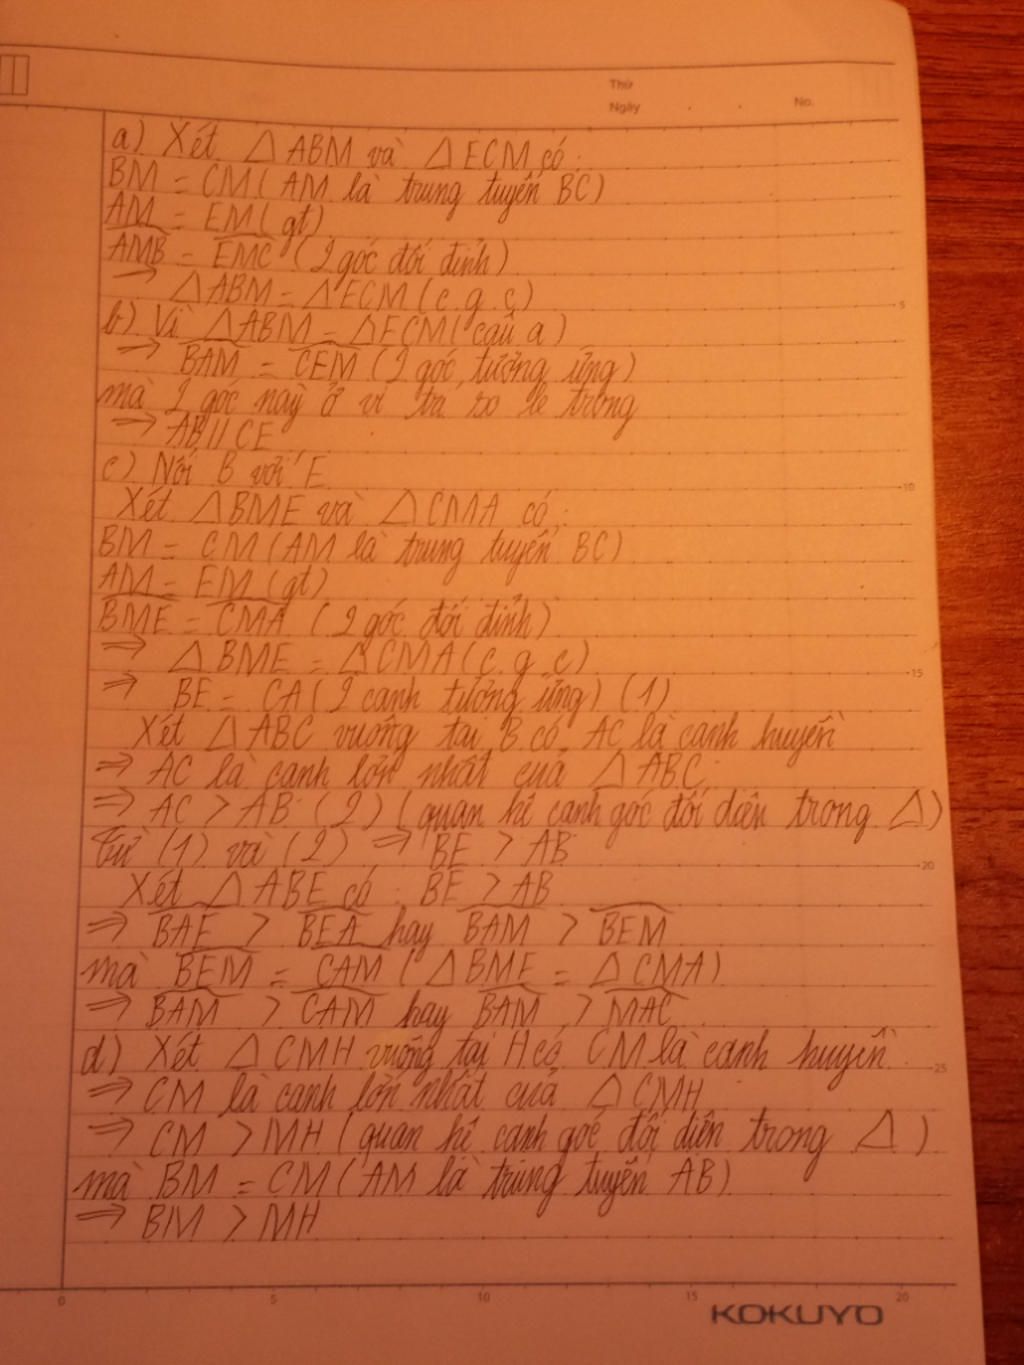 Thứ
Ngày . . No.
a) Xét △ ABM và △ ECM có:
BM = CM (AM là trung tuyến BC)
AM = EM (gt)
AMB = EMC (2 góc đối đỉnh)
⇒ △ABM = △ECM (c.g.c)
b) Vì △ABM = △ECM (câu a)
⇒ BAM = CEM (2 góc tương ứng)
mà 2 góc này ở vị trí so le trong
⇒ AB // CE
c) Nối B với E
Xét △BME và △CMA có:
BM = CM (AM là trung tuyến BC)
AM = EM (gt)
BME = CMA (2 góc đối đỉnh)
⇒ △BME = △CMA (c.g.c)
⇒ BE = CA (2 cạnh tương ứng) (1)
Xét △ABC vuông tại B có AC là cạnh huyền
⇒ AC là cạnh lớn nhất của △ABC
⇒ AC > AB (2) (quan hệ cạnh góc đối diện trong △)
Từ (1) và (2) ⇒ BE > AB
Xét △ABE có: BE > AB
⇒ BAE > BEA hay BAM > BEM
mà BEM = CAM (△BME = △CMA)
⇒ BAM > CAM hay BAM > MAC
d) Xét △CMH vuông tại H có CM là cạnh huyền
⇒ CM là cạnh lớn nhất của △CMH
⇒ CM > MH (quan hệ cạnh góc đối diện trong △)
mà BM = CM (AM là trung tuyến AB)
⇒ BM > MH
5
10
15
20
25
0 5 10 15 20
KOKUYO